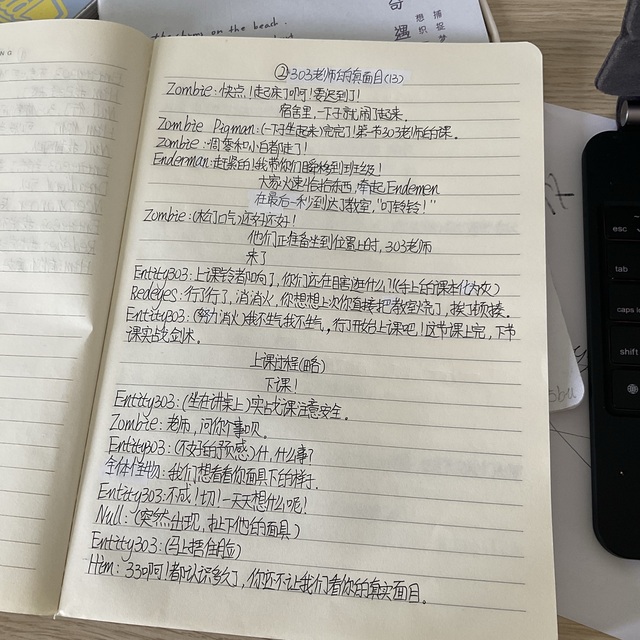 the rhythms on the beach.
奇遇
捕捉梦
想织
②303老师的真面目(13)
Zombie:快点!起床了啊!要迟到了!
宿舍里,一下子就闹了起来。
Zombie Pigman:(一下子坐起来)完完了!第一节303老师的课。
Zombie:凋零和小白都走了!
Enderman:赶紧的!我带你们瞬移到班级!
大家火速收拾东西,牵起Endemen
在最后一秒到达了教室,"叮铃铃!"
Zombie:(松了口气)还好还好!
他们正准备坐到位置上时,303老师
来了
Entity303:上课铃都响了,你们还在闲逛什么?!(手上的课本化为灰)
Redeyes:行了行了,消消火,你想想上次你直接把教室烧了,挨了顿揍。
Entity303:(努力消火)我不生气我不生气,行了开始上课吧!这节课上完,下节
课实战剑术。
上课过程(略)
下课!
Entity303:(坐在讲桌上)实战课注意安全。
Zombie:老师,问你个事呗。
Entity303:(不好的预感)什,什么事?
全体怪物:我们想看看你面具下的样子。
Entity303:不成!切!一天天想什么呢!
Null:(突然出现,扯下他的面具)
Entity303:(马上捂住脸)
Him:33啊啊!都认识多久了,你还不让我们看你的真实面目。
esc
tab
caps
shift